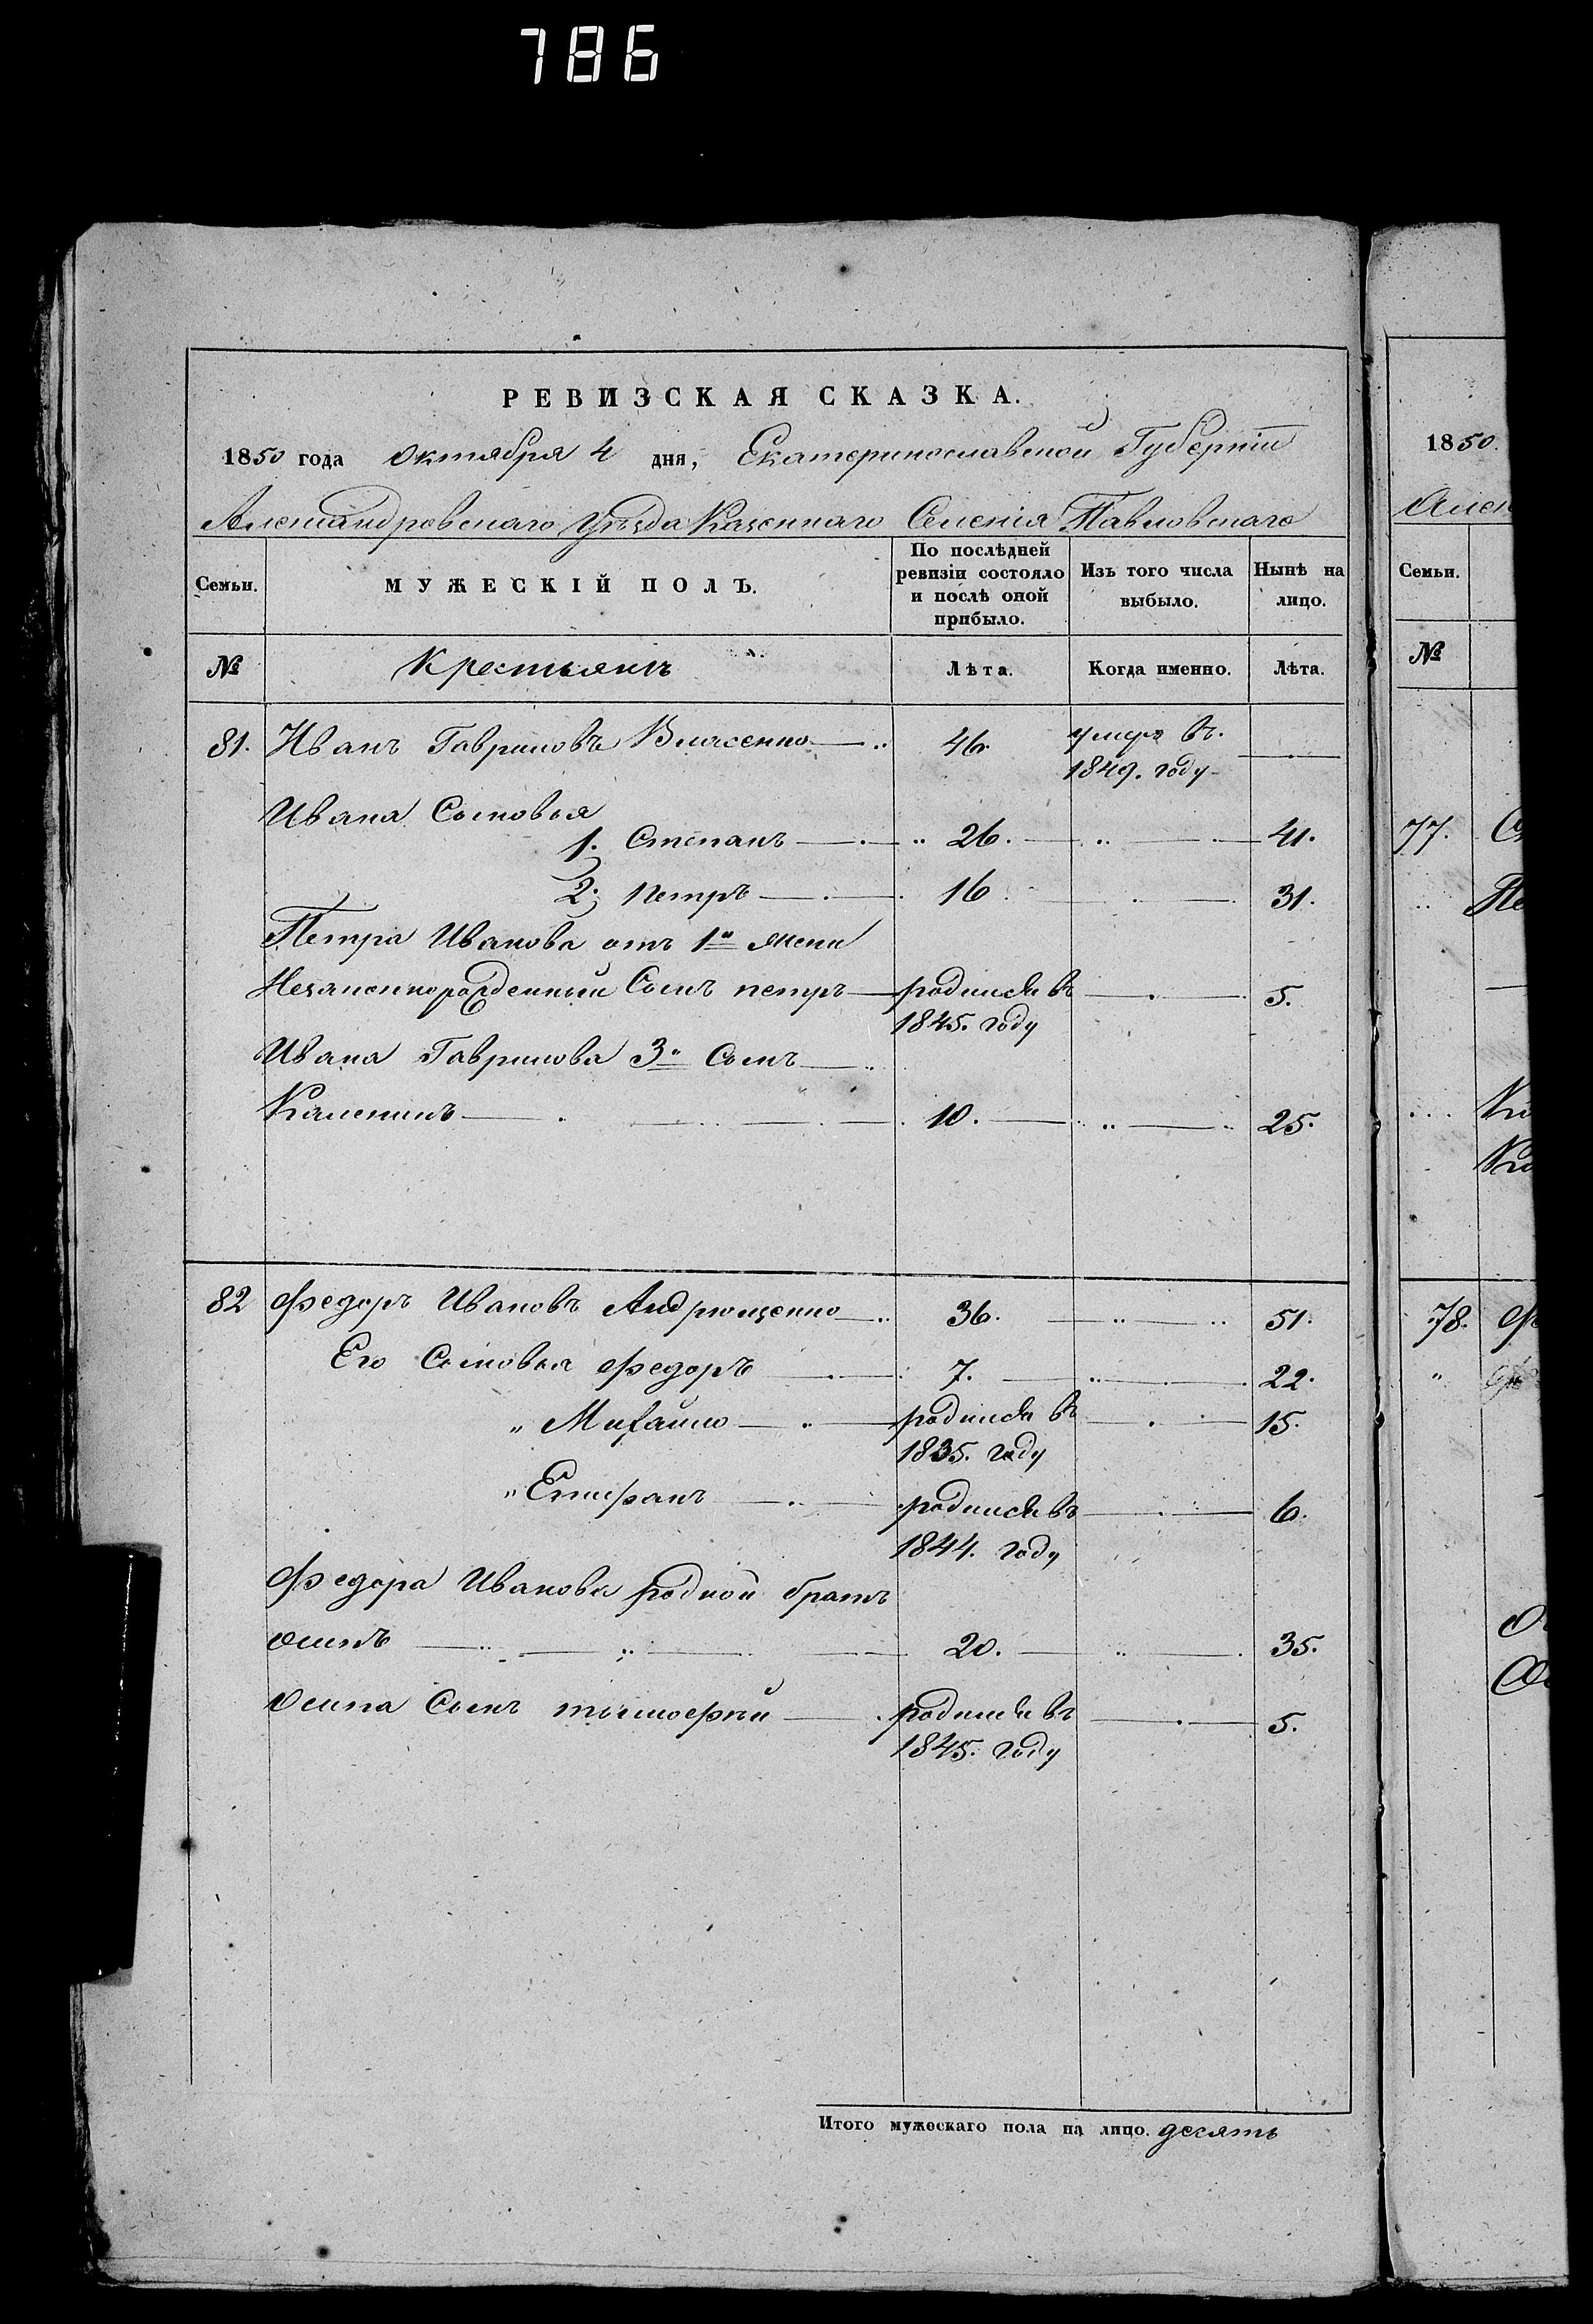 786
РЕВИЗСКАЯ СКАЗКА.
1850 года Октября 4 дня, Екатеринославской Губерніи
Александровскаго Уѣзда Казеннаго Селенія Павловскаго
Семьи. МУЖЕСКІЙ ПОЛЪ. По послѣдней ревизіи состояло и послѣ оной прибыло. Изъ того числа выбыло. Нынѣ на лицо.
№ Крестьянъ Лѣта. Когда именно. Лѣта.
81. Иванъ Гавриловъ Власенко 46. умеръ въ
1849. году
Ивана Сыновья
1. Степанъ 26. 41.
2. Петръ 16 31.
Петра Иванова отъ 1й жены
Незаконнорожденный Сынъ петръ родился въ 5.
1845. году
Ивана Гаврилова 3й Сынъ
Каленикъ 10. 25.
82 Федоръ Ивановъ Андрющенко 36. 51.
Его Сыновья Федоръ 7. 22.
„ Михайло родился въ 15.
1835. году
„ родился въ 6.
1844. году
Федора Иванова родной братъ
Осипъ 20. 35.
Осипа Сынъ тимофѣй родился въ 5.
1845. году
Итого мужескаго пола на лицо. десять
1850.
Алек
Семьи.
№
77.
78.